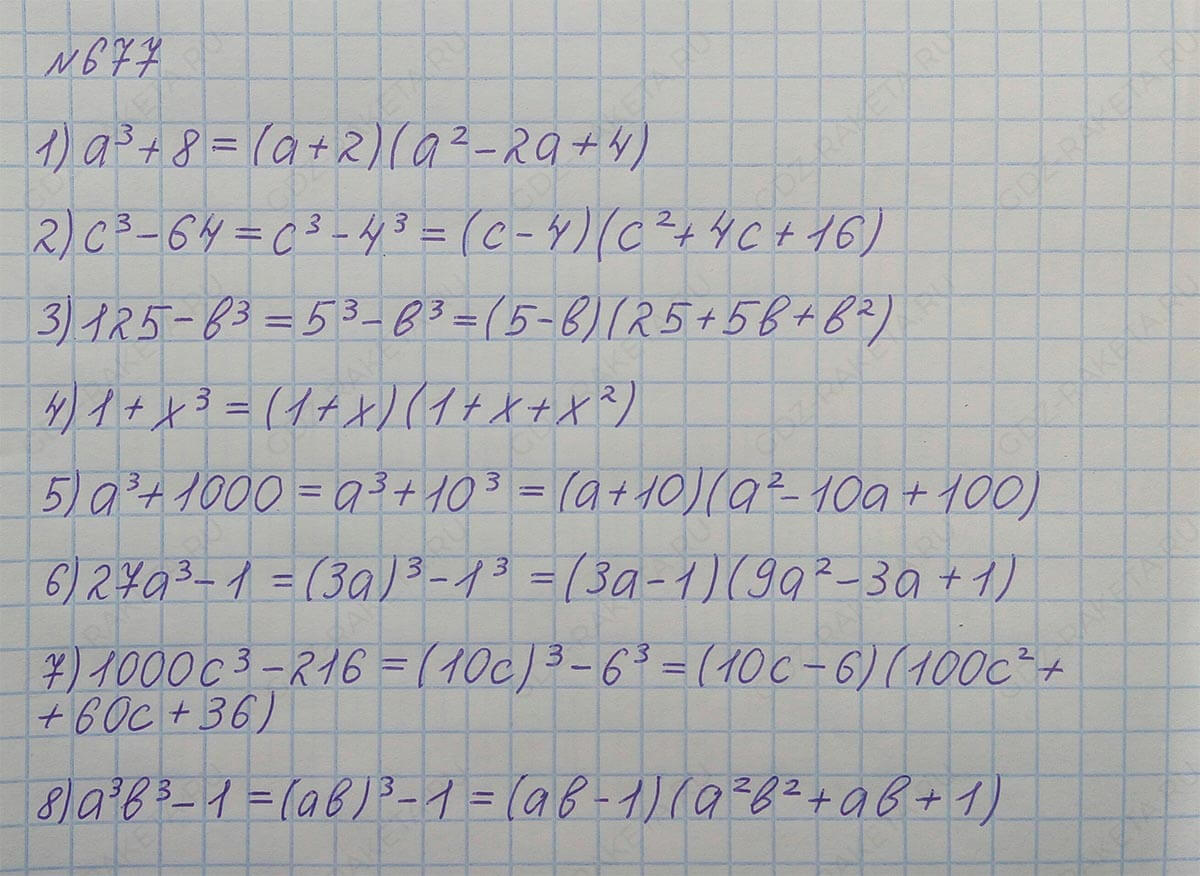 №677
1) a³+8=(a+2)(a²-2a+4)
2) c³-64=c³-4³=(c-4)(c²+4c+16)
3) 125-в³=5³-в³=(5-в)(25+5в+в²)
4) 1+x³=(1+x)(1+x+x²)
5) a³+1000=a³+10³=(a+10)(a²-10a+100)
6) 27a³-1=(3a)³-1³=(3a-1)(9a²-3a+1)
7) 1000c³-216=(10c)³-6³=(10c-6)(100c²+
+60c+36)
8) a³в³-1=(aв)³-1=(aв-1)(a²в²+aв+1)
GDZ-RAKETA.RU